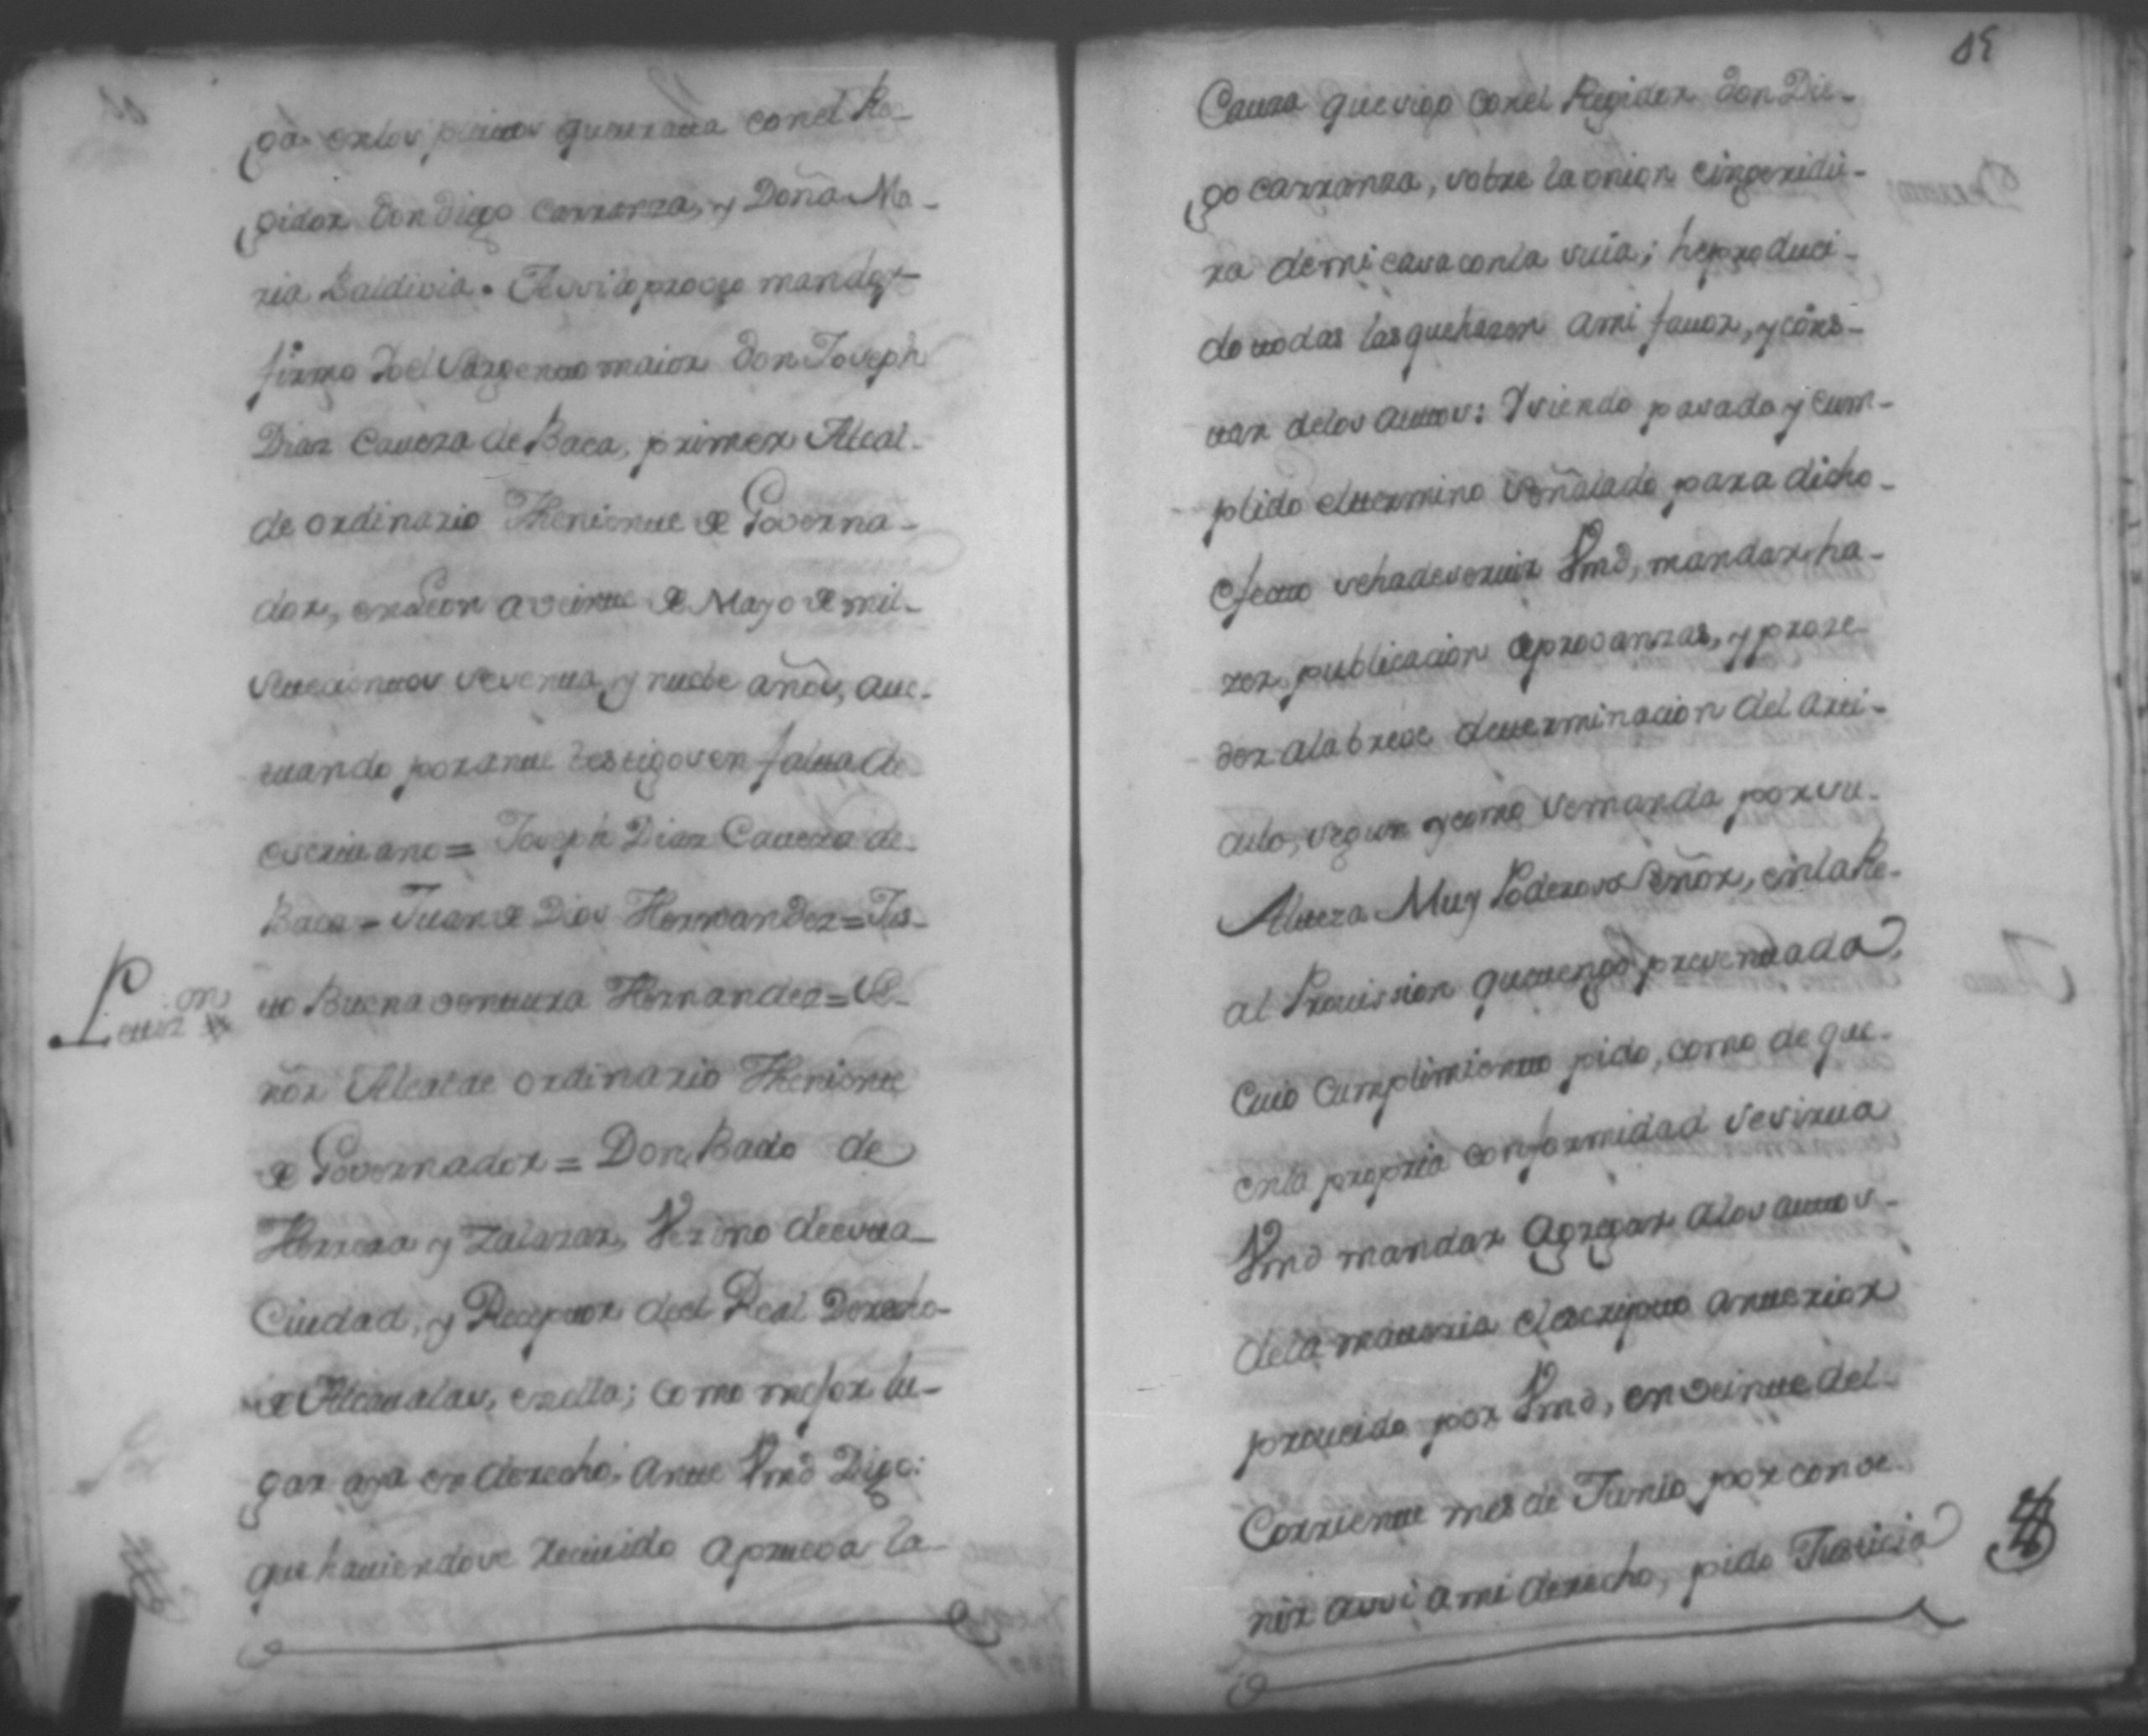 ga. en los pleitos que trata con el Re-
gidor don Diego Carranza, y Doña Ma-
ria Baldivia. Assi lo proveo mando y
firmo Yo el Sargento maior don Joseph
Diaz Caveza de Baca, primer Alcal-
de ordinario Theniente de Governa-
dor, en Leon a veinte de Mayo de mil
setecientos sesenta, y nuebe años, auc-
tuando por ante testigos en falta de
escrivano = Joseph Diaz Caveza de
Baca = Juan de Dios Hernandez = Jus-
to Buenaventura Hernandez = Se-
Petizon
ñor Alcalde ordinario Theniente
de Governador = Don Bado de
Herrera y Zalazar, Vezino de esta
Ciudad, y Receptor deel Real Derecho
de Alcavalas, en ella; como mejor lu-
gar aya en derecho, ante Vmd Digo:
que haviendose recivido a prueva la
85
Causa que sigo con el Regidor don Die-
go Carranza, sobre la union e ingeridu-
ra de mi casa con la suia; he produci-
do todas las que hazen a mi favor, y cons-
tan de los autos: Y siendo pasado y cum-
plido el termino señalado para dicho
efecto se ha de servir Vmd, mandar ha-
zer publicacion de provanzas, y proze-
der a la breve determinacion del arti-
culo, segun y como se manda por su
Alteza Muy Poderoso Señor, en la Re-
al Provission que tengo presentada,
cuio cumplimiento pido, como de que
en la propria conformidad se sirva
Vmd mandar agregar a los autos
de la materia el escripto anterior
proveido por Vmd, en veinte del
Corriente mes de Junio por conve-
nir assi a mi derecho, pido Justicia